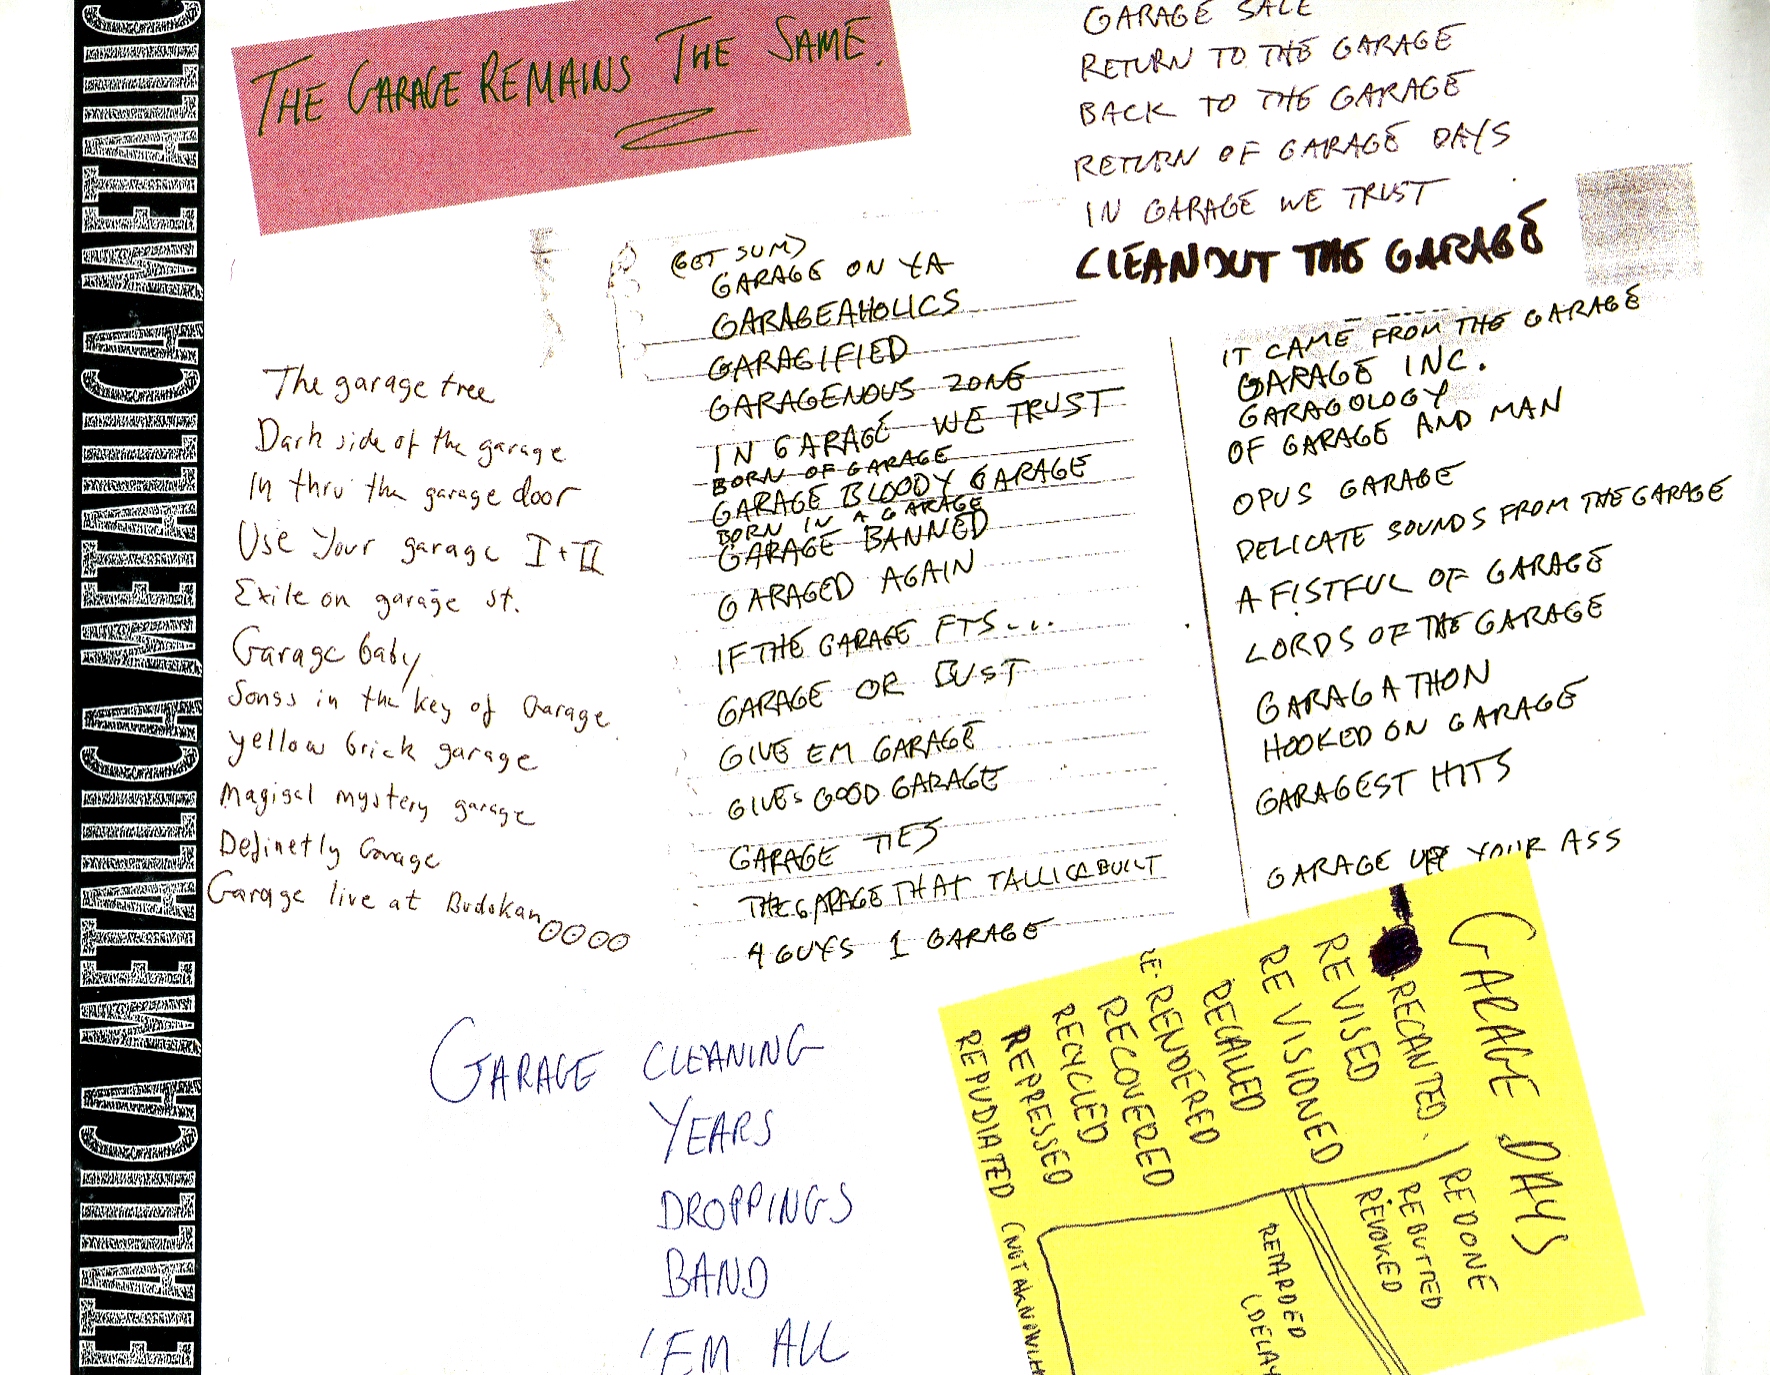 ETALLICA METALLICA METALLICA METALLICA METALLIC
THE GARAGE REMAINS THE SAME.
GARAGE SALE
RETURN TO THE GARAGE
BACK TO THE GARAGE
RETURN OF GARAGE DAYS
IN GARAGE WE TRUST
CLEANOUT THE GARAGE
The garage tree
Dark side of the garage
In thru the garage door
Use Your garage I + II
Exile on garage st.
Garage baby
Songs in the key of Garage
yellow brick garage
Magical mystery garage
Definetly Garage
Garage live at Budokan
(GET SUM)
GARAGE ON YA
GARAGEAHOLICS
GARAGIFIED
GARAGENOUS ZONE
IN GARAGE WE TRUST
BORN OF GARAGE
GARAGE BLOODY GARAGE
BORN IN A GARAGE
GARAGE BANNED
GARAGED AGAIN
IF THE GARAGE FTS....
GARAGE OR BUST
GIVE EM GARAGE
GIVES GOOD GARAGE
GARAGE TIES
THE GARAGE THAT TALLICA BUILT
4 GUYS 1 GARAGE
IT CAME FROM THE GARAGE
GARAGE INC.
GARAGOLOGY
OF GARAGE AND MAN
OPUS GARAGE
DELICATE SOUNDS FROM THE GARAGE
A FISTFUL OF GARAGE
LORDS OF THE GARAGE
GARAGATHON
HOOKED ON GARAGE
GARAGEST HITS
GARAGE UP YOUR ASS
GARAGE CLEANING
YEARS
DROPPINGS
BAND
'EM ALL
GARAGE DAYS
RECANTED.
REVISED
REVISIONED
RECALLED
RE-RENDERED
RECOVERED
RECYCLED
REPRESSED
REPUDIATED (NOT AKNOWLE
REDONE
REBUTTED
REVOKED
RETARDED
(DELAY